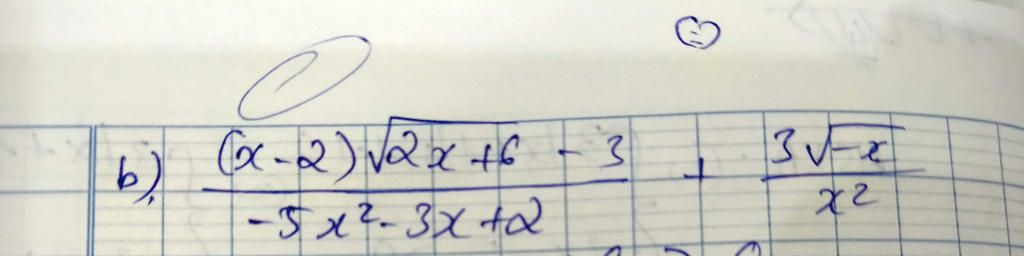 b) \frac{(x-2)\sqrt{2x+6}-3}{-5x^2-3x+2} + \frac{3\sqrt{-x}}{x^2}